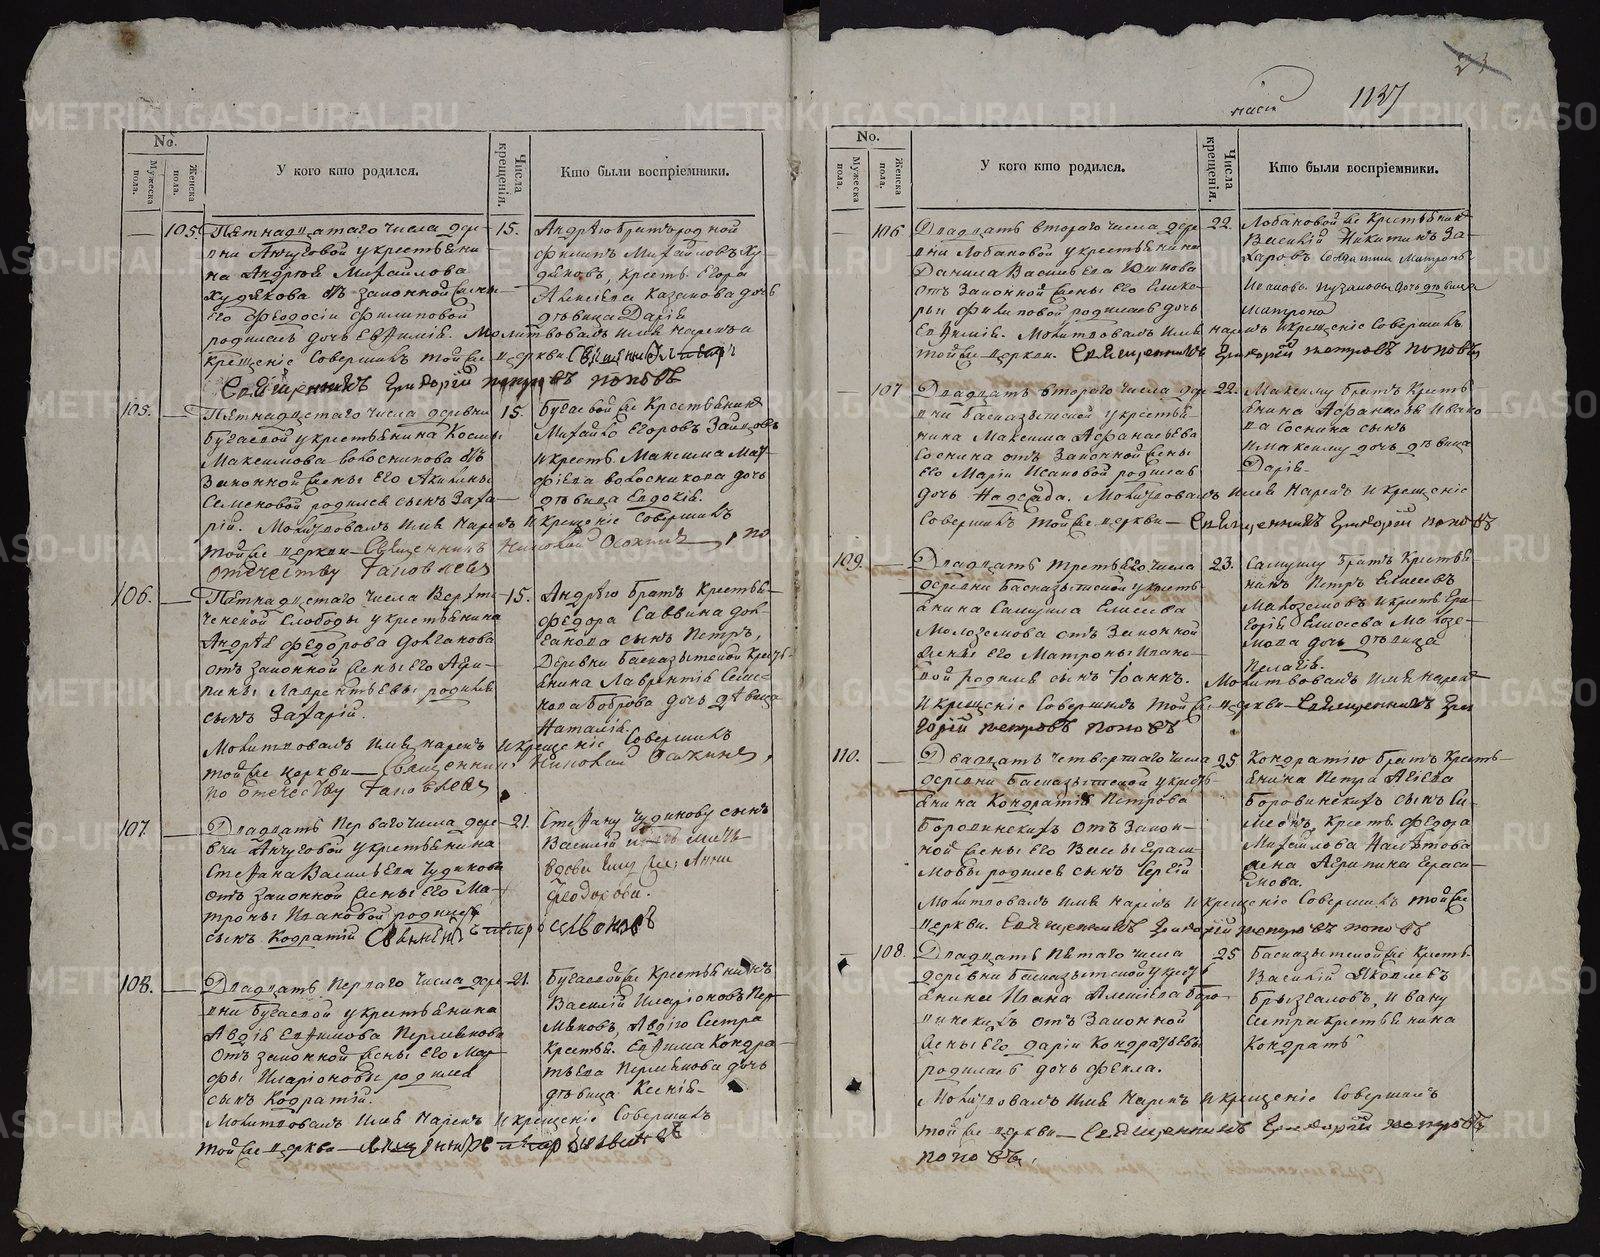 23
1137
No.
Мужеска пола.
Женска пола.
У кого кто родился.
Числа крещенія.
Кто были воспріемники.
105.
Пятнадцатаго числа дере-
вни Анчуговой у крестьяни-
на Андрея Михайлова
Худякова отъ законной жены
его Феодосіи Филиповой
родилась дочь Евфимія. Молитвовалъ имя нарекъ и
крещеніе совершилъ той же церкви
Священникъ Григорій Петровъ Поповъ
15.
Андрею братъ родной
Филипъ Михайловъ Ху-
дяковъ, крестья. Егора
Алексеева Казакова дочь
девица Дарія
105.
Пятнадцатаго числа деревни
Бугаевой у крестьянина Космы
Максимова Волосникова отъ
законной жены его Акилины
Семеновой родился сынъ Заха-
рій. Молитвовалъ имя нарекъ и крещеніе совершилъ
той же церкви Священникъ Николай Осокинъ, по
отечеству Яковлевъ
15.
Бугаевой же крестьянинъ
Михайло Егоровъ Зайцовъ
и крестья. Максима Мат-
фѣева Волосникова дочь
девица Евдокія.
106.
Пятнадцатаго числа Верхтѣ-
ченской слободы у крестьянина
Андрея Федорова
отъ законной жены его Агри-
пины Лаврентьевы родился
сынъ Захарій.
Молитвовалъ имя нарекъ и крещеніе совершилъ
той же церкви Священникъ Николай Осокинъ,
по отечеству Яковлевъ
15.
Андрею братъ крестья-
Федора Саввина
сынъ Петръ,
деревни Басказыкской кресть-
янина Лаврентія Семе-
нова Боброва дочь девица
Наталія.
107.
Двадцать перваго числа дере-
вни Анчуговой у крестьянина
Стефана Васильева Чудинова
отъ законной жены его Ма-
троны Ивановой родился
сынъ Кодратій
21.
Стефану Чудинову сынъ
Василій
вдова Анна
Феодорова.
108.
Двадцать перваго числа дере-
вни Бугаевой у крестьянина
Авдія Евфимова Пермякова
отъ законной жены его Мар-
фы Иларіоновы родился
сынъ Кодратій.
Молитвовалъ имя нарекъ и крещеніе совершилъ
той же церкви
21.
Бугаевой же крестьянинъ
Василій Иларіоновъ Пер-
мяковъ, Авдію сестра
крестья. Евфима Кондра-
тьева Пермякова дочь
девица Ксенія.
No.
Мужеска пола.
Женска пола.
У кого кто родился.
Числа крещенія.
Кто были воспріемники.
106
Двадцать втораго числа дере-
вни Лобановой у крестьянина
Данила Васильева Юшкова
отъ законной жены его Глике-
рьи Филиповой родилась дочь
Евфимія. Молитвовалъ имя нарекъ и крещеніе совершилъ
той же церкви. Священникъ Григорій Петровъ Поповъ
22.
Лобановой же крестьянинъ
Василій Никитинъ За-
харовъ солдатки Матроны
Ивановы Пузановы дочь девица
Матрона
107
Двадцать втораго числа дере-
вни Басказыкской у крестья-
нина Максима Афанасьева
Соснина отъ законной жены
его Маріи Исаковой родилась
дочь Надежда. Молитвовалъ имя нарекъ и крещеніе
совершилъ той же церкви Священникъ Григорій Поповъ
22.
Максиму братъ кресть-
янина
Соснина сынъ
и Максиму дочь девица
Дарія
109.
Двадцать третьяго числа
деревни Басказыкской у кресть-
янина Самуила Елисеева
Малоземова отъ законной
жены его Матроны Ивано-
вой родился сынъ Іоаннъ. Молитвовалъ имя нарекъ
и крещеніе совершилъ той же церкви Священникъ Гри-
горій Петровъ Поповъ
23.
Самуилу братъ крестья-
нинъ Петръ Елисеевъ
Малоземовъ и кресть. Гри-
горія Елисеева Малозе-
мова дочь девица
Пелагія.
110.
Двадцать четвертаго числа
деревни Басказыкской у кресть-
янина Кондратія Петрова
Боровинскихъ отъ закон-
ной жены его Васы Гераси-
мовы родился сынъ Сергій
Молитвовалъ имя нарекъ и крещеніе совершилъ той же
церкви. Священникъ Григорій Петровъ Поповъ
25
Кондратію братъ кресть-
янина Петра Авіева
Боровинскихъ сынъ Си-
меонъ, кресть. Федора
Михайлова
жена Агрипина Гераси-
мова.
108.
Двадцать пятаго числа
деревни Басказыкской у кресть-
янина Ивана Алексеева Боро-
винскихъ отъ законной
жены его Даріи Кондратьевы
родилась дочь Фекла.
Молитвовалъ имя нарекъ и крещеніе совершилъ
той же церкви Священникъ Григорій Петровъ
Поповъ.
25
Басказыкской же кресть.
Василій Яковлевъ
Брызгаловъ, Ивану
сестра крестьянина
Кондрать